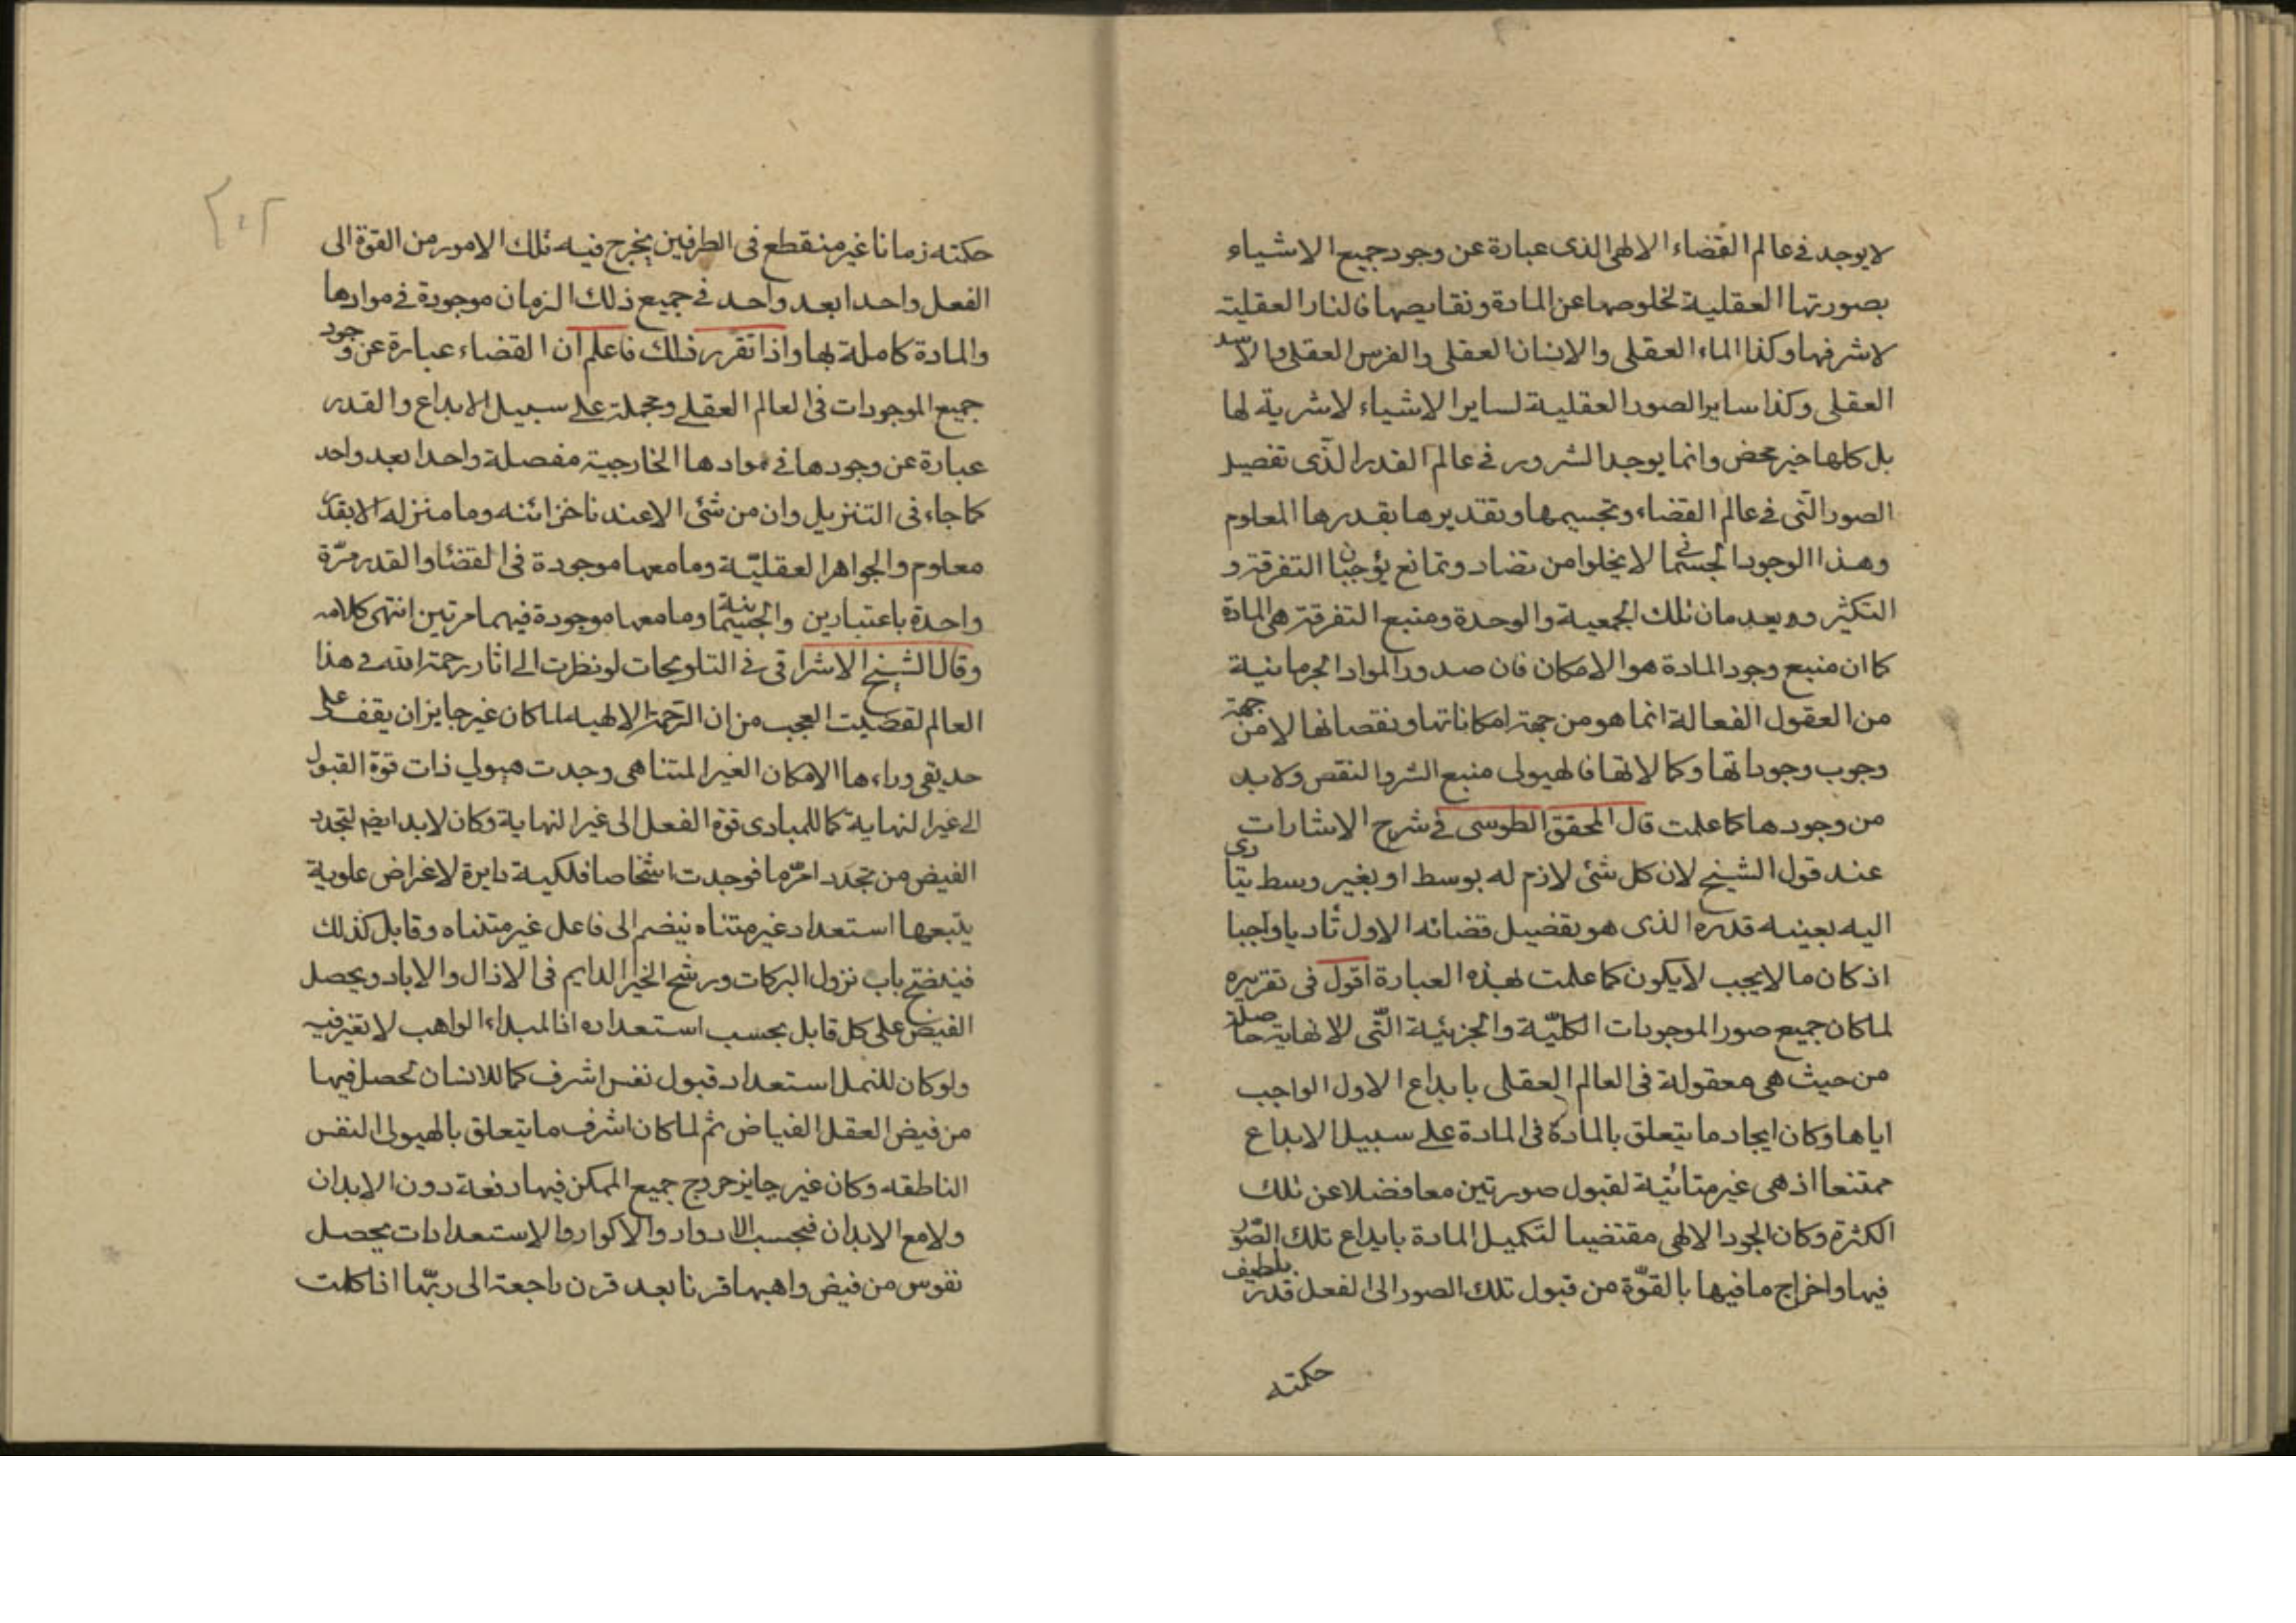 لا يوجد في عالم القضاء الالهى الذى عبارة عن وجود جميع الاشياء
بصورتها العقلية لخلوصها عن المادة ونقايصها فالنار العقلية
لا شر فيها وكذا الماء العقلى والانسان العقلى والفرس العقلى والاسد
العقلى وكذا ساير الصور العقلية لساير الاشياء لا شرية لها
بل كلها خير محض وانما يوجد الشرور في عالم القدر الذى تفصيل
الصور التى في عالم القضاء وتجسيمها وتقديرها بقدرها المعلوم
وهذا الوجود الجسمانى لا يخلوا من تضاد وتمانع يوجبان التفرقة و
التكثير ويعدمان تلك الجمعية والوحدة ومنبع التفرقة هى المادة
كما ان منبع وجود المادة هو الامكان فان صدور المواد الجرمانية
من العقول الفعالة انما هو من جهة امكاناتها ونقصانها لا من جهة
وجوب وجوداتها وكمالاتها فالهيولى منبع الشر والنقص ولا بد
من وجودها كما علمت قال المحقق الطوسى في شرح الاشارات
عند قول الشيخ لان كل شئ لازم له بوسط او بغير وسط يتادى
اليه بعينه قدره الذى هو تفضيل قضائه الاول تاديا واجبا
اذ كان ما لا يجب لا يكون كما علمت بهذه العبارة اقول فى تقريره
لما كان جميع صور الموجودات الكليّة والجزئية التّى لا نهاية حاصلة
من حيث هى معقولة فى العالم العقلى بابداع الاول الواجب
اياها وكان ايجاد ما يتعلق بالمادة فى المادة على سبيل الابداع
ممتنعا اذ هى غير متاتية لقبول صورتين معا فضلا عن تلك
الكثرة وكان الجود الالهى مقتضيا لتكميل المادة بابداع تلك الصّور
فيها واخراج ما فيها بالقوّة من قبول تلك الصور الى الفعل قدر بلطيف
حكمته
٢٠٢
حكمته زمانا غير منقطع فى الطرفين يخرج فيه تلك الامور من القوة الى
الفعل واحدا بعد واحد في جميع ذلك الزمان موجودة في موادها
والمادة كاملة بها واذا تقرر ذلك فاعلم ان القضاء عبارة عن وجود
جميع الموجودات فى العالم العقلى ومجملة على سبيل الابداع والقدر
عبارة عن وجودها في موادها الخارجية مفصلة واحدا بعد واحد
كما جاء فى التنزيل وان من شئ الا عندنا خزائنه وما ننزله الا بقدر
معلوم والجواهر العقليّة وما معها موجودة فى القضاء والقدر مرّة
واحدة باعتبارين والجسمانية وما معها موجودة فيهما مرتين انتهى كلامه
وقال الشيخ الاشراقى في التلويحات لو نظرت الى اثار رحمة الله في هذا
العالم لقضيت العجب من ان الرحمة الالهيه لما كان غير جايز ان يقف على
حد يبقى وراءها الامكان الغير المتناهى وجدت هيولى ذات قوة القبول
الى غير النهاية كما للمبادى قوة الفعل الى غير النهاية وكان لابد ايضا لتجدد
الفيض من تجدد امر ما فوجدت اشخاصا فلكية دايرة لاغراض علوية
يتبعها استعداد غير متناه ينضم الى فاعل غير متناه وقابل كذلك
فينفتح باب نزول البركات ورشح الخير الدايم فى الازال والاباد ويحصل
الفيض على كل قابل بحسب استعداده اذ المبداء الواهب لا تغير فيه
ولو كان للنمل استعداد قبول نفس اشرف كما للانسان لحصل فيها
من فيض العقل الفياض ثم لما كان اشرف ما يتعلق بالهيولى النفس
الناطقه وكان غير جايز خروج جميع الممكن فيها دفعة دون الابدان
ولا مع الابدان فبحسب الادوار والاكوار والاستعدادات يحصل
نفوس من فيض واهبها قرنا بعد قرن راجعة الى ربّها اذا كملت